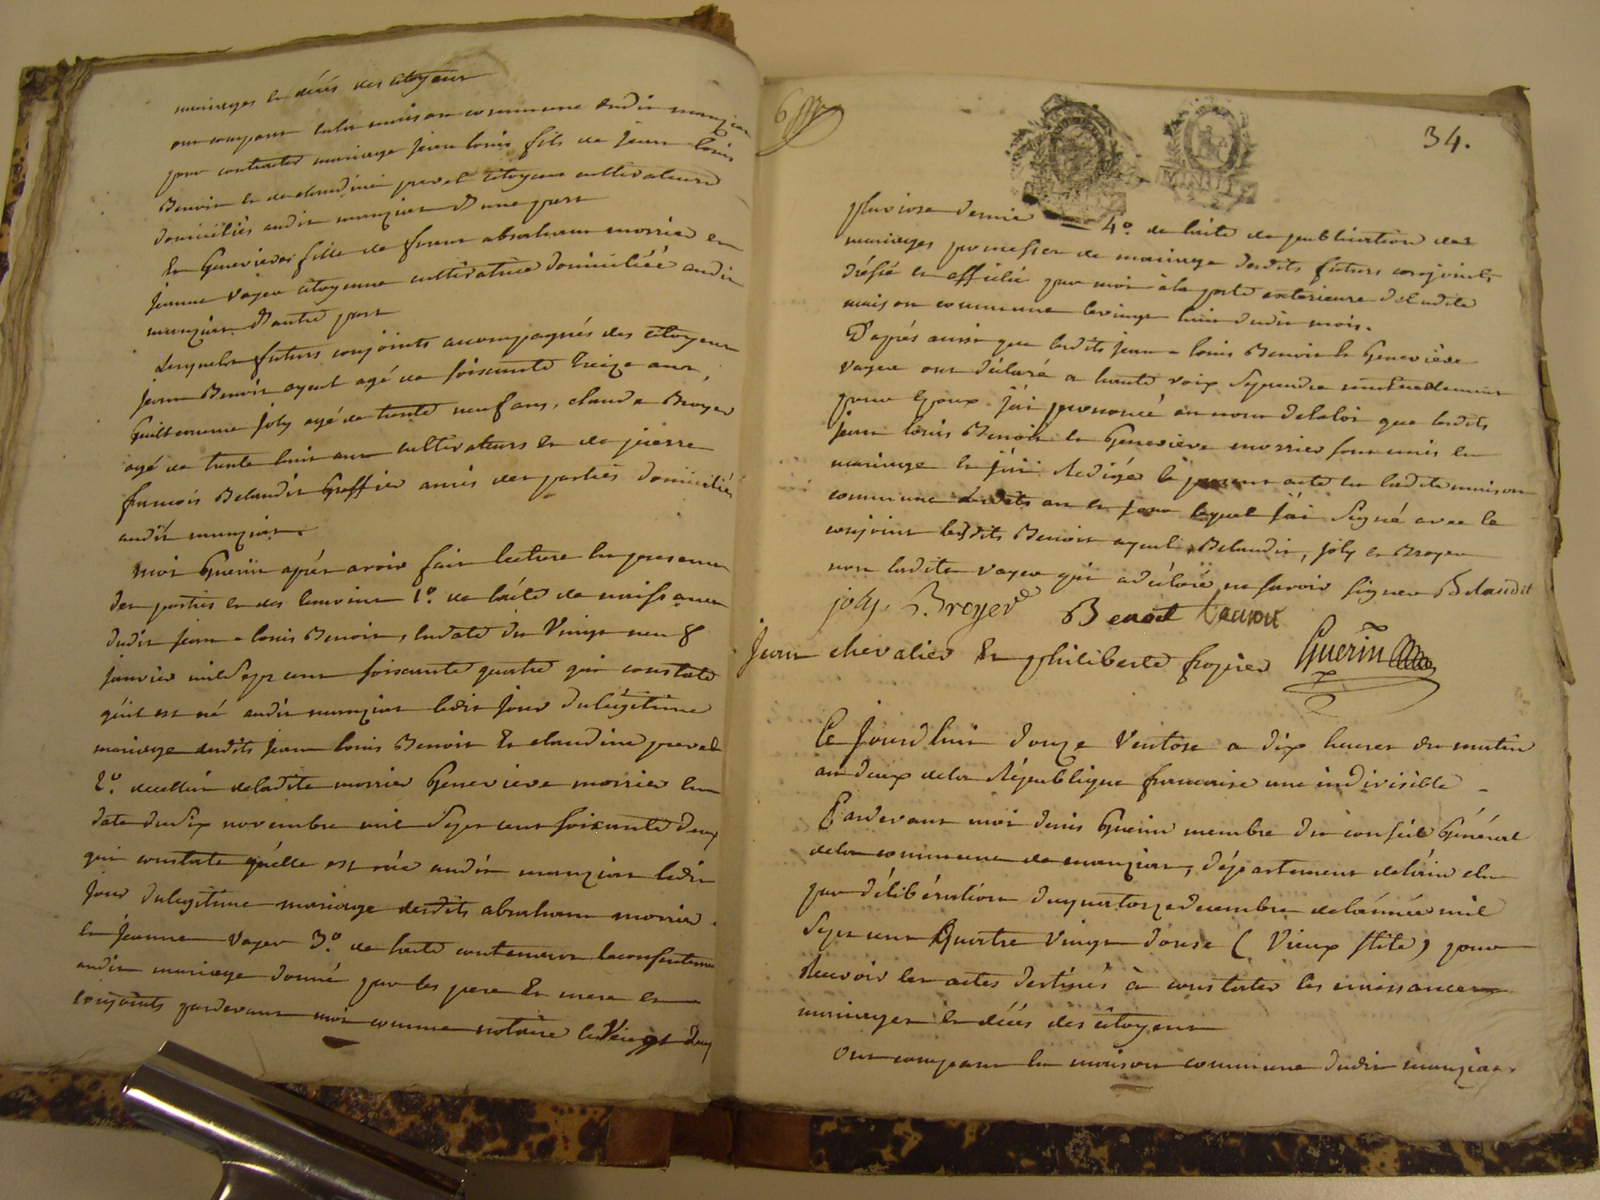 mariages et décés des citoyens
ont comparu en la maison commune dudit manziat
pour contracter mariage jean louis fils de jean louis
Benoit et de claudine prevel citoyens cultivateurs
domiciliés audit manziat d'une part
Et Genevieve fille de abraham morrier et
jeanne voyer citoyenne cultivatrice domiciliée audit
manziat d'autre part
Lesquels futurs conjoints accompagnés des citoyens
jean Benoit ayeul agé de soixante treize ans,
Guillaume joly agé de trente neuf ans, claude Broyer
agé de trente huit ans cultivateurs et de pierre
francois Belaudit Greffier amis des parties domiciliés
audit manziat.
Moi Guerin aprés avoir fait lecture en presence
des parties et des temoins 1.º de l'acte de naissance
dudit jean-louis Benoit, en date du vingt neuf
janvier mil sept cent soixante quatre qui constate
qu'il est né audit manziat ledit jour du legitime
mariage desdits jean louis Benoit Et claudine prevel
2.º de celui de ladite morrier Genevieve morrier en
date du six novembre mil sept cent soixante deux
qui constate qu'elle est née audit manziat ledit
jour du legitime mariage desdits abraham morrier
et jeanne voyer 3.º de l'acte contenant le consentement
audit mariage donné par les pere Et mere et
conjoints pardevant moi comme notaire le vingt deux
34.
pluviose dernier 4.º de l'acte de publication des
mariages promesses de mariage desdits futurs conjoints
dréssé et affiché par moi à la porte exterieure de ladite
maison commune le vingt huit dudit mois.
D'aprés aussi que lesdits jean-louis Benoit et Geneviève
voyer ont déclaré a haute voix se prendre mutuellement
pour Epoux j'ai prononcé au nom de la loi que lesdits
jean louis Benoit et Geneviève morrier sont unis en
mariage et j'ai Redigé le présent acte en ladite maison
commune lesdits an et jour lequel j'ai signé avec le
conjoint lesdits Benoit ayeul, Belaudit, joly et Broyer
non ladite voyer qui a déclaré ne savoir signer Belaudit
joly. Broyer Benoit
jean chevalier Et philiberte frogier Guerin
Ce jourd'hui douze Ventose a dix heures du matin
an deux de la République francaise une indivisible
Pardevant moi denis Guerin membre du conseil Général
de la commune de manziat, département de l'ain élu
par délibération du quatorze decembre de l'année mil
sept cent Quatre vingt douze (vieux stile) pour
Recevoir les actes destinés à constater les naissances
mariages et décés des citoyens
Ont comparu en la maison commune dudit manziat